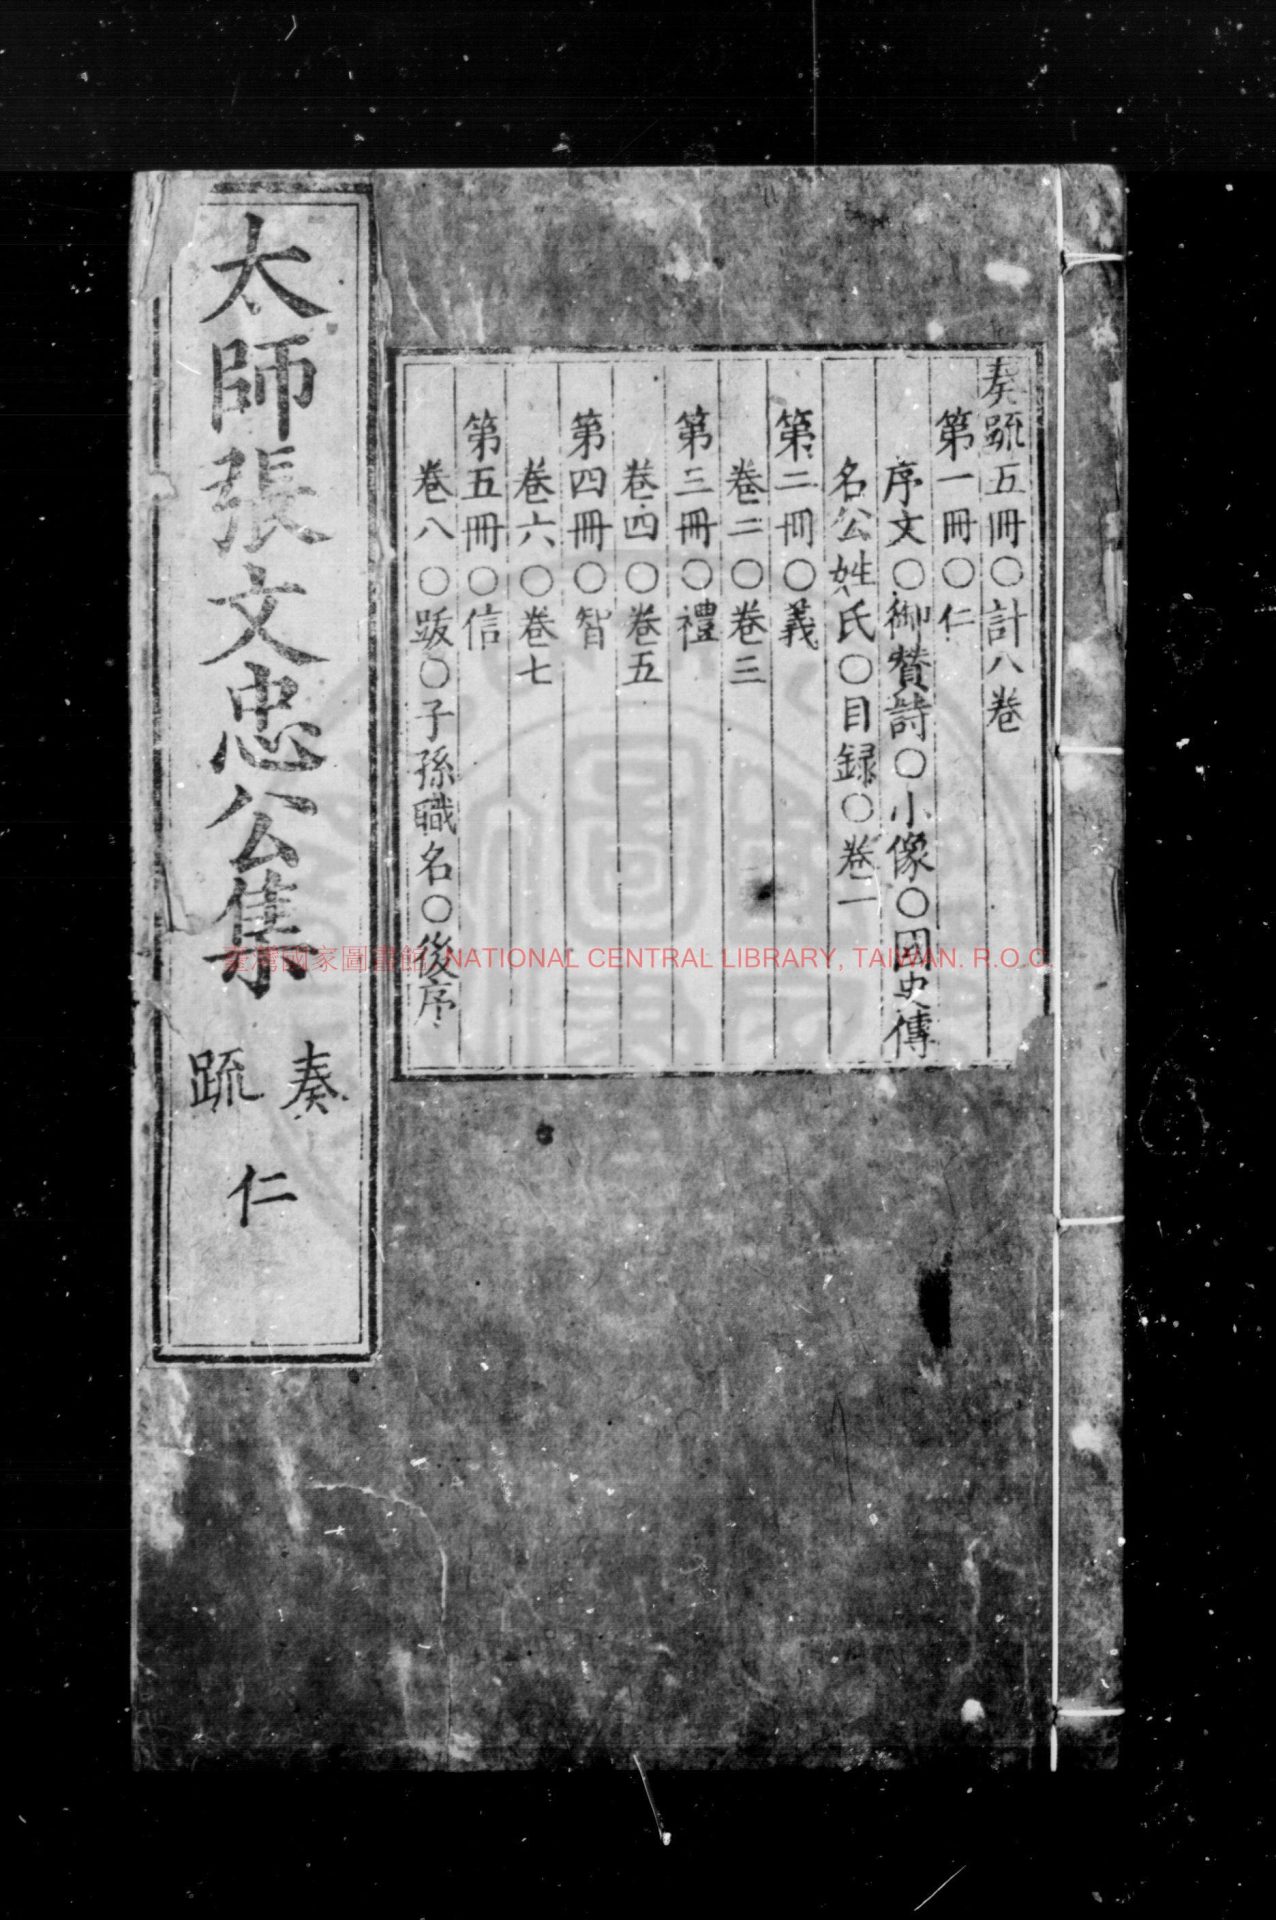 奏疏五冊○計八卷
第一冊○仁
序文○御贊詩○小像○國史傳
名公姓氏○目録○卷一
第二冊○義
卷二○卷三
第三冊○禮
卷四○卷五
第四冊○智
卷六○卷七
第五冊○信
卷八○跋○子孫職名○後序
太師張文忠公集
奏疏
仁
臺灣國家圖書館, NATIONAL CENTRAL LIBRARY, TAIWAN. R.O.C.